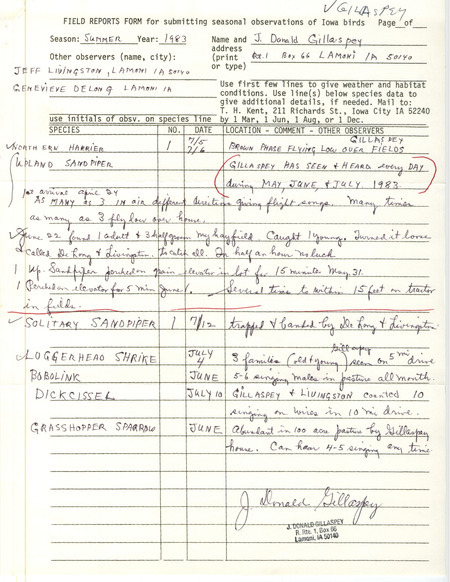 ✓GILLASPEY
FIELD REPORTS FORM for submitting seasonal observations of Iowa birds Page of
Season: SUMMER Year: 1983 Name and J. Donald Gillaspey
address Rt.1 Box 66 LAMONI IA 50140
Other observers (name, city): (print
or type)
JEFF LIVINGSTON, LAMONI IA 50140
GENEVIEVE DELONG LAMONI IA
Use first few lines to give weather and habitat
conditions. Use line(s) below species data to
give additional details, if needed. Mail to:
T. H. Kent, 211 Richards St., Iowa City IA 52240
use initials of obsv. on species line by 1 Mar, 1 Jun, 1 Aug, or 1 Dec.
SPECIES NO. DATE LOCATION - COMMENT - OTHER OBSERVERS
GILLASPEY
✓NORTHERN HARRIER 1 7/5 7/6 BROWN PHASE FLYING LOW OVER FIELDS
UPLAND SANDPIPER GILLASPEY HAS SEEN & HEARD every DAY
during MAY, JUNE, & JULY 1983.
1st arrival april 24
As MANY as 3 IN air different directions giving flight songs. Many times
as many as 3 fly low over home.
✓June 22 found 1 adult & 3 half grown my hayfield. Caught 1 young. Turned it loose
& called De Long & Livingston to catch all. In half an hour no luck.
1 Up. Sandpiper perched on grain elevator in lot for 15 minutes May 31.
1 Perched on elevator for 5 min June 1. Several time to within 15 feet on tractor
in fields.
✓SOLITARY SANDPIPER 1 7/12 trapped & banded by De Long & Livingston
Gillaspey
✓LOGGERHEAD SHRIKE JULY 4 3 families (old & young) seen on 5 mi drive
BOBOLINK JUNE 5-6 singing males in pasture all month.
DICKCISSEL JULY 10 GILLASPEY & LIVINGSTON counted 10
singing on wires in 10 mi drive.
GRASSHOPPER SPARROW JUNE Abundant in 100 acre pasture by Gillaspey
house. Can hear 4-5 singing any time
J. Donald Gillaspey
J. DONALD GILLASPEY
R. Rte. 1, Box 66
Lamoni, IA 50140